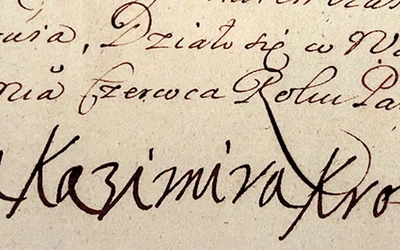 usia, Działo się w
nia Czerwca Roku Pa
Kazimira Kro